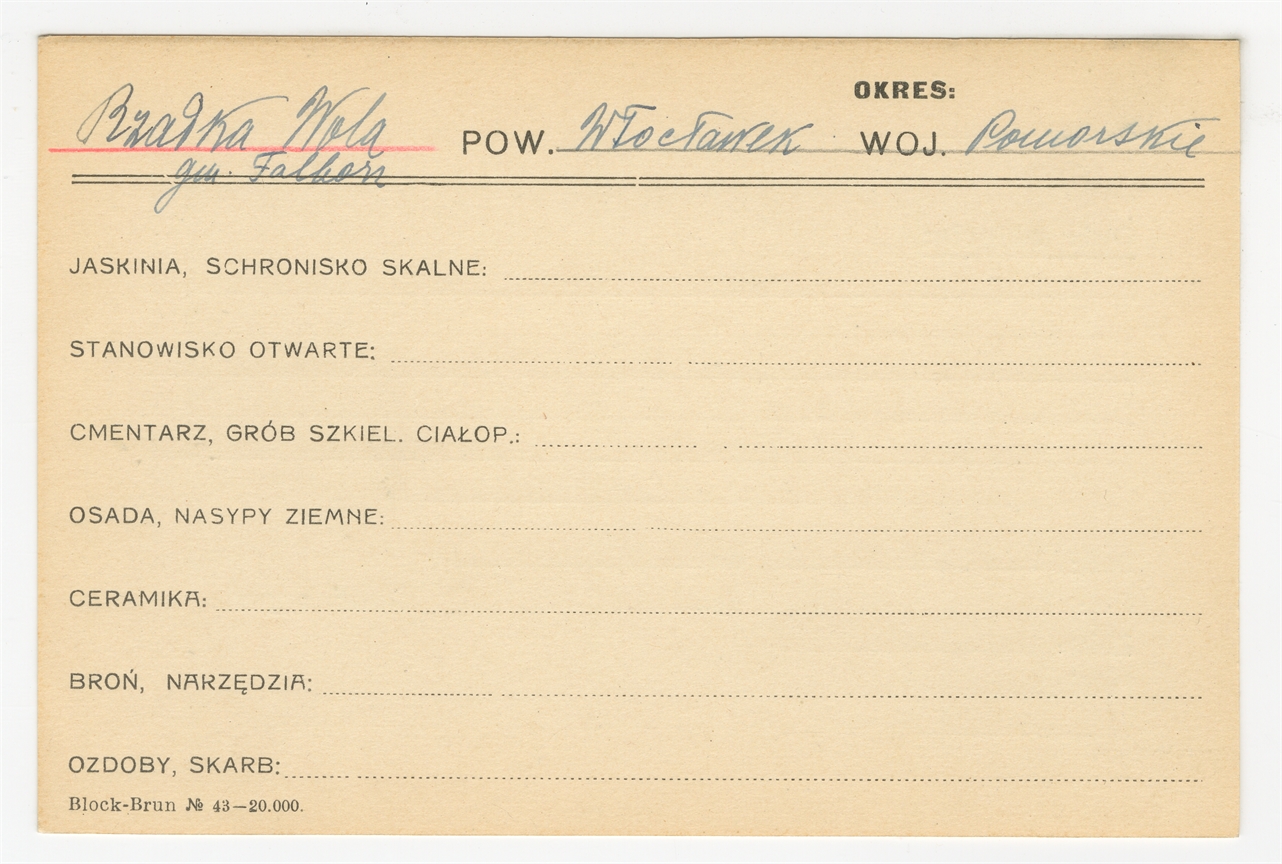 OKRES:
Rządka Wola POW. Włocławek WOJ. Pomorskie
gm. Falborz
JASKINIA, SCHRONISKO SKALNE:
STANOWISKO OTWARTE:
CMENTARZ, GRÓB SZKIEL. CIAŁOP.:
OSADA, NASYPY ZIEMNE:
CERAMIKA:
BROŃ, NARZĘDZIA:
OZDOBY, SKARB:
Block-Brun № 43—20.000.